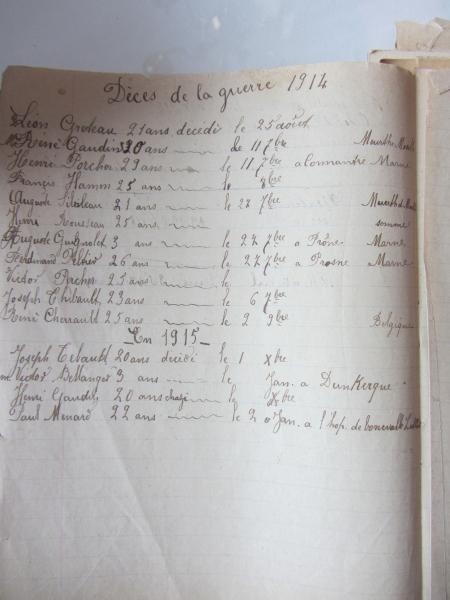 Décès de la guerre 1914
Léon Groleau 21 ans décédé le 25 août
René Gaudin 30 ans le 11 7bre Meurthe
Henri Porcher 29 ans le 11 7bre a Connantre Marne
François Hamon 25 ans le 8bre
Auguste 21 ans le 27 7bre Meurthe
Henri Rousseau 25 ans somme
Auguste Guignolet 3 ans le 27 7bre a Prône Marne
Ferdinand 26 ans le 27 7bre a Prosne Marne
Victor Porcher 25 ans le
Joseph Thibault 23 ans le 6 7bre
René Charrault 25 ans le 2 9bre Belgique
En 1915
Joseph Tibault 20 ans décédé le 1 Xbre
Victor Bellanger 3 ans le Jan. a Dunkerque
Henri 20 ans le Xbre
Paul Menard 22 ans le 20 Jan. a l'hop. de